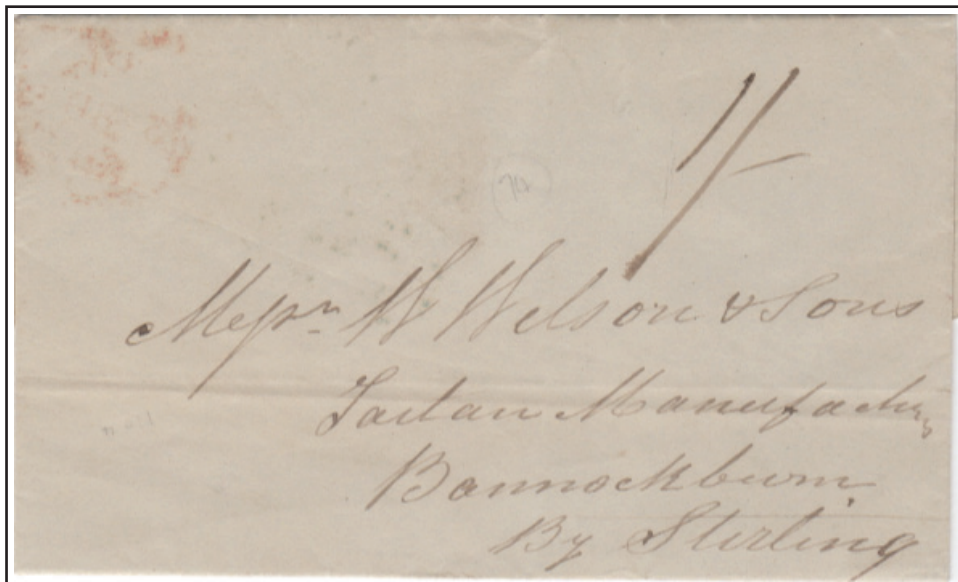 1/-
74
Messrs W Wilson & Sons
Tartan Manufacturers
Bannockburn
By Stirling